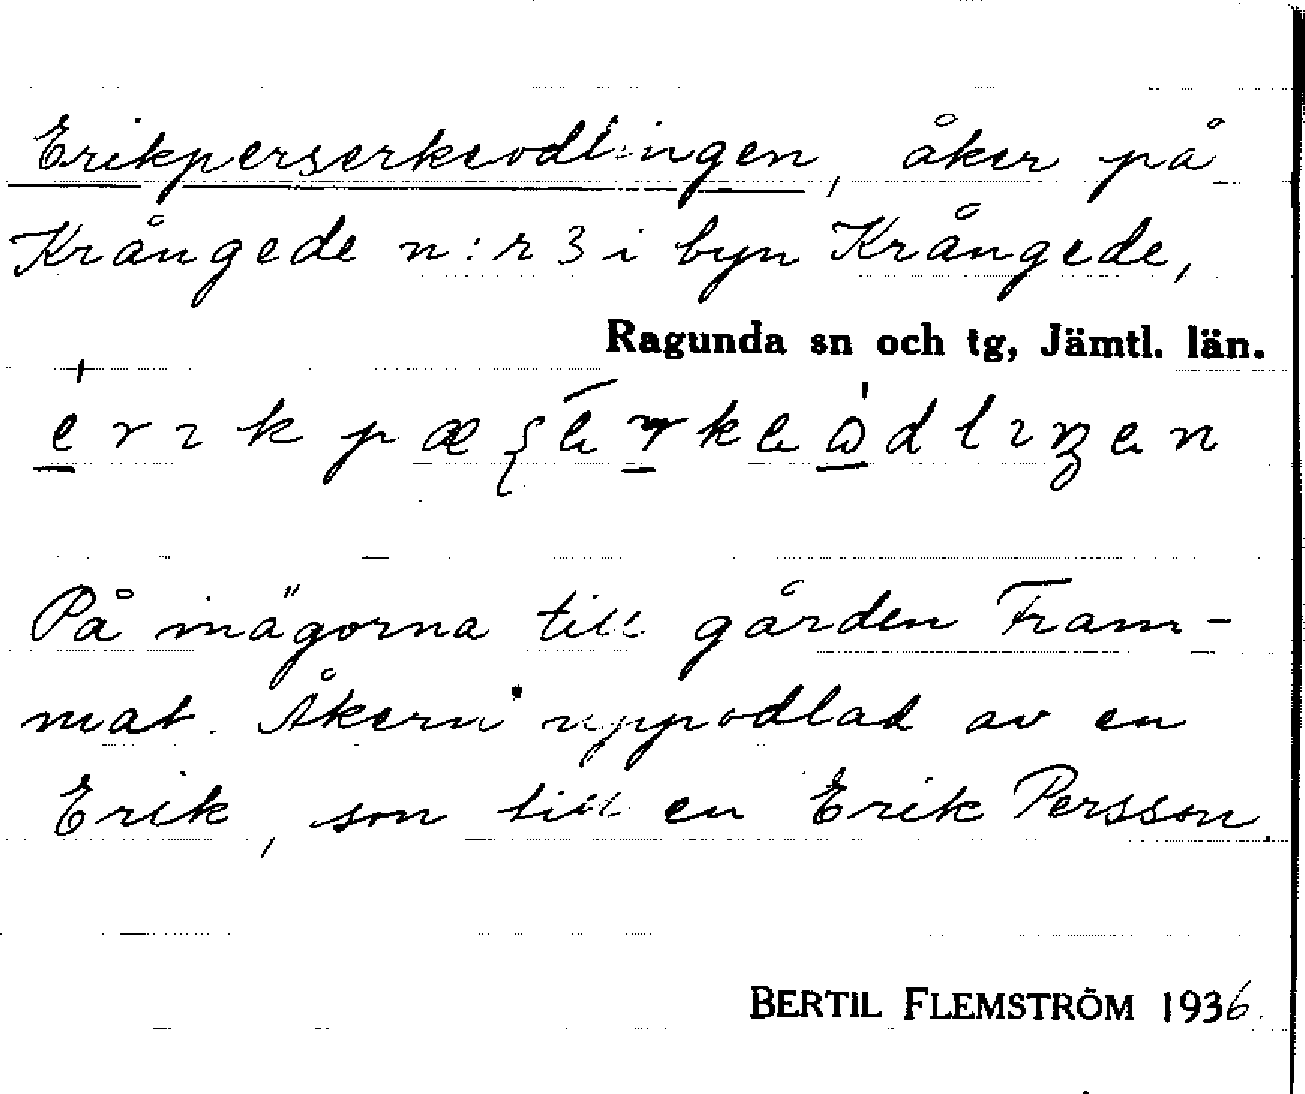 Erikperserkeodlingen, åker på
Krångede n:r 3 i byn Krångede,
Ragunda sn och tg, Jämtl. län.
På inägorna till gården Fram-
mat. Åkern uppodlad av en
Erik, son till en Erik Persson.
BERTIL FLEMSTRÖM 1936